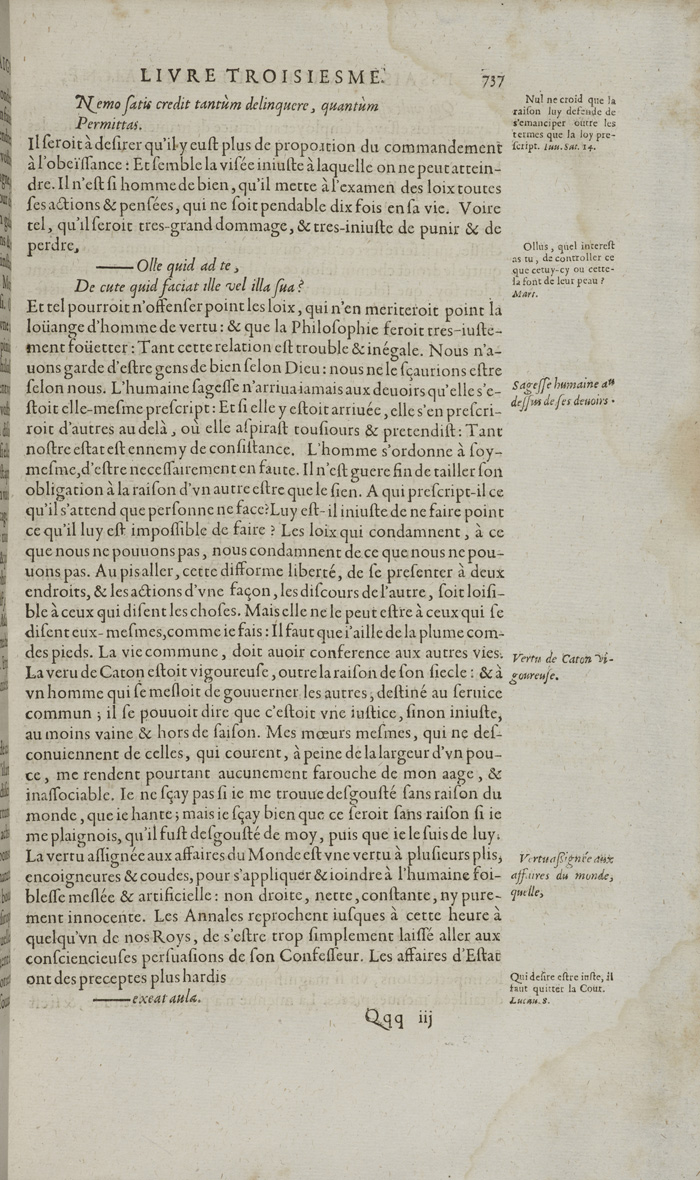 LIVRE TROISIESME. 737
Nemo satis credit tantùm delinquere, quantùm
Permittas.
Nul ne croid que la
raison luy defende de
s'emanciper outre les
termes que la loy pre-
script. Iuu. Sat. 14.
Il seroit à desirer qu'il y eust plus de proportion du commandement
à l'obeïssance : Et semble la visée iniuste à laquelle on ne peut attein-
dre. Il n'est si homme de bien, qu'il mette à l'examen des loix toutes
ses actions & pensées, qui ne soit pendable dix fois en sa vie. Voire
tel, qu'il seroit tres-grand dommage, & tres-iniuste de punir & de
perdre,
—— Olle quid ad te,
De cute quid faciat ille vel illa sua ?
Ollus, quel interest
as tu, de controller ce
que cetuy-cy ou cette-
la font de leur peau ?
Mart.
Et tel pourroit n'offenser point les loix, qui n'en meriteroit point la
loüange d'homme de vertu : & que la Philosophie feroit tres-iuste-
ment foüetter : Tant cette relation est trouble & inégale. Nous n'a-
uons garde d'estre gens de bien selon Dieu : nous ne le sçaurions estre
selon nous. L'humaine sagesse n'arriua iamais aux deuoirs qu'elle s'e-
stoit elle-mesme prescript : Et si elle y estoit arriuée, elle s'en prescri-
roit d'autres au delà, où elle aspirast tousiours & pretendist : Tant
nostre estat est ennemy de consistance. L'homme s'ordonne à soy-
mesme, d'estre necessairement en faute. Il n'est guere fin de tailler son
obligation à la raison d'vn autre estre que le sien. A qui prescript-il ce
qu'il s'attend que personne ne face? Luy est-il iniuste de ne faire point
ce qu'il luy est impossible de faire ? Les loix qui condamnent, à ce
que nous ne pouuons pas, nous condamnent de ce que nous ne pou-
uons pas. Au pis aller, cette difforme liberté, de se presenter à deux
endroits, & les actions d'vne façon, les discours de l'autre, soit loisi-
ble à ceux qui disent les choses. Mais elle ne le peut estre à ceux qui se
disent eux-mesmes, comme ie fais : Il faut que i'aille de la plume com-
des pieds. La vie commune, doit auoir conference aux autres vies.
La veru de Caton estoit vigoureuse, outre la raison de son siecle : & à
vn homme qui se mesloit de gouuerner les autres, destiné au seruice
commun ; il se pouuoit dire que c'estoit vne iustice, sinon iniuste,
au moins vaine & hors de saison. Mes mœurs mesmes, qui ne des-
conuiennent de celles, qui courent, à peine de la largeur d'vn pou-
ce, me rendent pourtant aucunement farouche de mon aage, &
inassociable. Ie ne sçay pas si ie me trouue desgousté sans raison du
monde, que ie hante ; mais ie sçay bien que ce seroit sans raison si ie
me plaignois, qu'il fust desgousté de moy, puis que ie le suis de luy.
La vertu assignée aux affaires du Monde est vne vertu à plusieurs plis,
encoigneures & coudes, pour s'appliquer & ioindre à l'humaine foi-
blesse meslée & artificielle : non droite, nette, constante, ny pure-
ment innocente. Les Annales reprochent iusques à cette heure à
quelqu'vn de nos Roys, de s'estre trop simplement laissé aller aux
consciencieuses persuasions de son Confesseur. Les affaires d'Estat
ont des preceptes plus hardis
—— exeat aula.
Sagesse humaine au
dessus de ses deuoirs.
Vertu de Caton vi-
goureuse.
Vertu assignée aux
affaires du monde,
quelle,
Qui desire estre iuste, il
faut quitter la Cour.
Lucan. 8.
Qqq iij